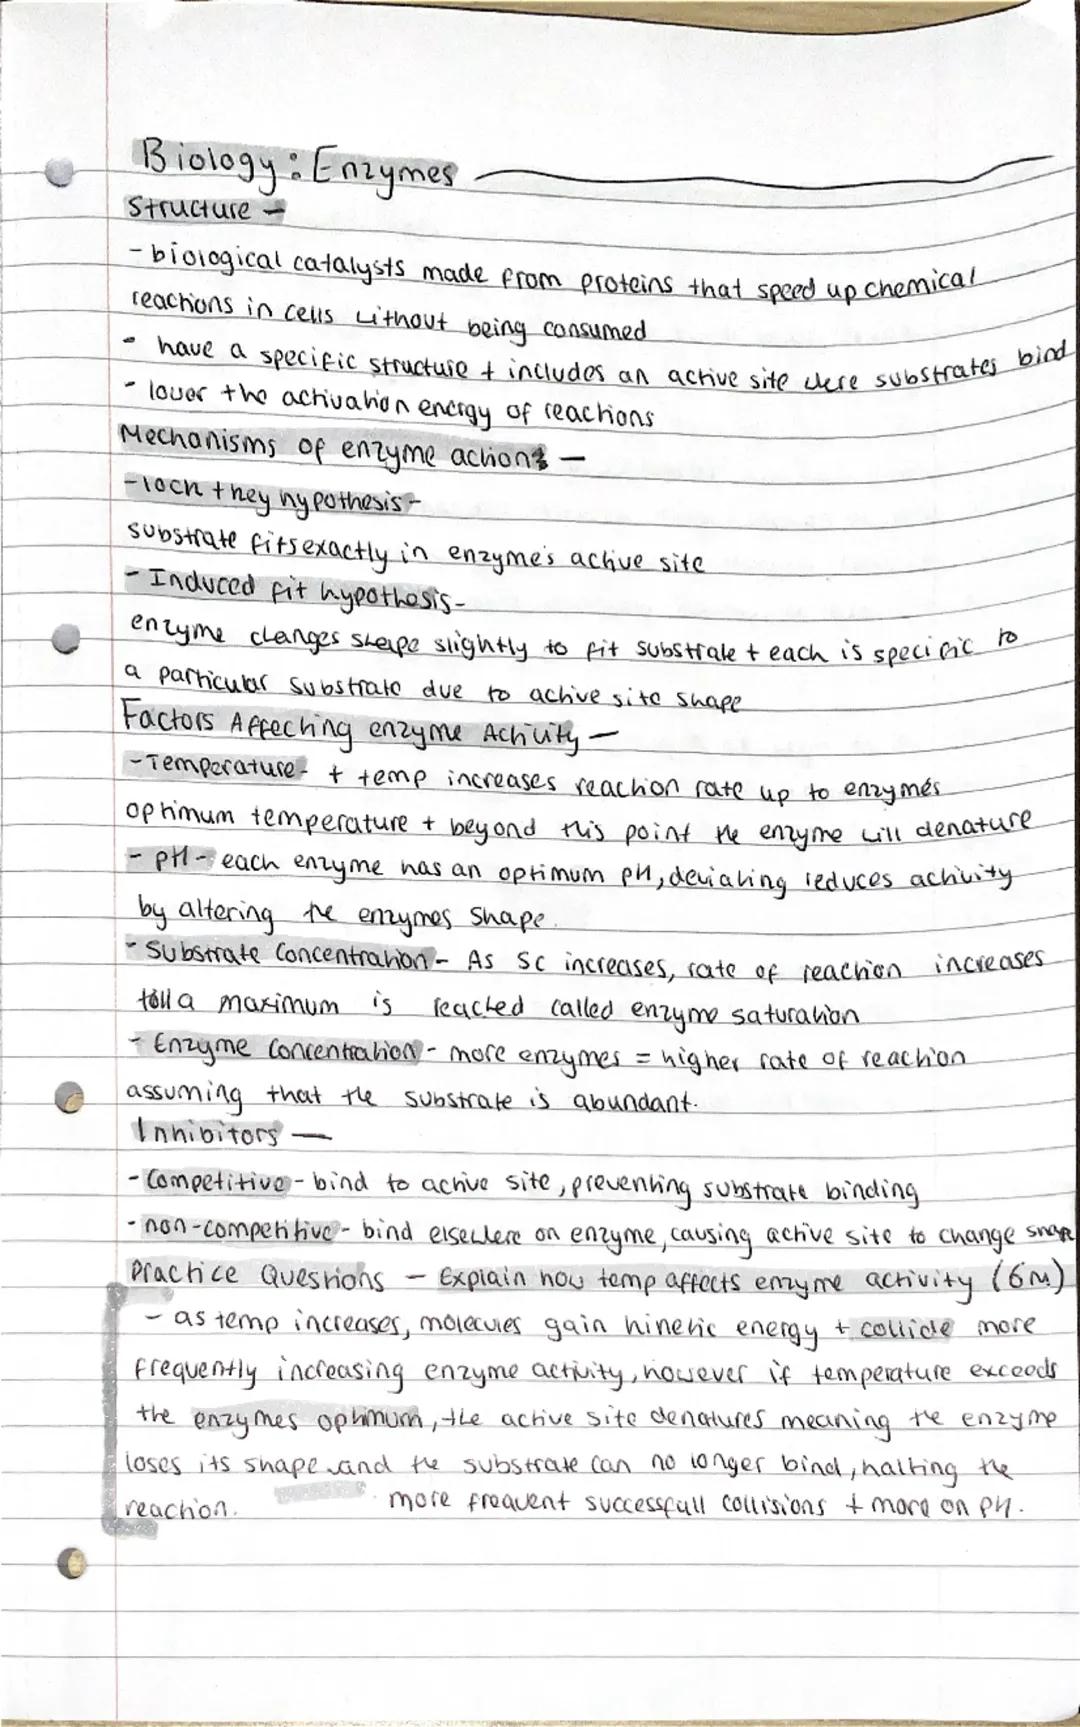 Biology: Enzymes
Structure -
- biological catalysts made from proteins that speed up chemical
reactions in cells without being consumed
- have a specific structure + includes an active site where substrates bind
- lower the activation energy of reactions
Mechanisms of enzyme action -
- lock + key hypothesis -
substrate fits exactly in enzyme's active site
- Induced fit hypothesis -
enzyme changes shape slightly to fit substrate + each is specific to
a particular substrate due to active site shape
Factors Affecting enzyme Activity -
- Temperature - + temp increases reaction rate up to enzymes
optimum temperature + beyond this point the enzyme will denature
- pH - each enzyme has an optimum pH, deviating reduces activity
by altering the enzymes shape.
- Substrate Concentration - As SC increases, rate of reaction increases
till a maximum is reached called enzyme saturation
- Enzyme Concentration - more enzymes = higher rate of reaction
assuming that the substrate is abundant.
Inhibitors -
- Competitive - bind to active site, preventing substrate binding
- non-competitive - bind elsewhere on enzyme, causing active site to change shape
Practice Questions - Explain how temp affects enzyme activity (6m)
- as temp increases, molecules gain kinetic energy + collide more
frequently increasing enzyme activity, however if temperature exceeds
the enzymes optimum, the active site denatures meaning the enzyme
loses its shape and the substrate can no longer bind, halting the
reaction. more frequent successfull collisions + more on pH.